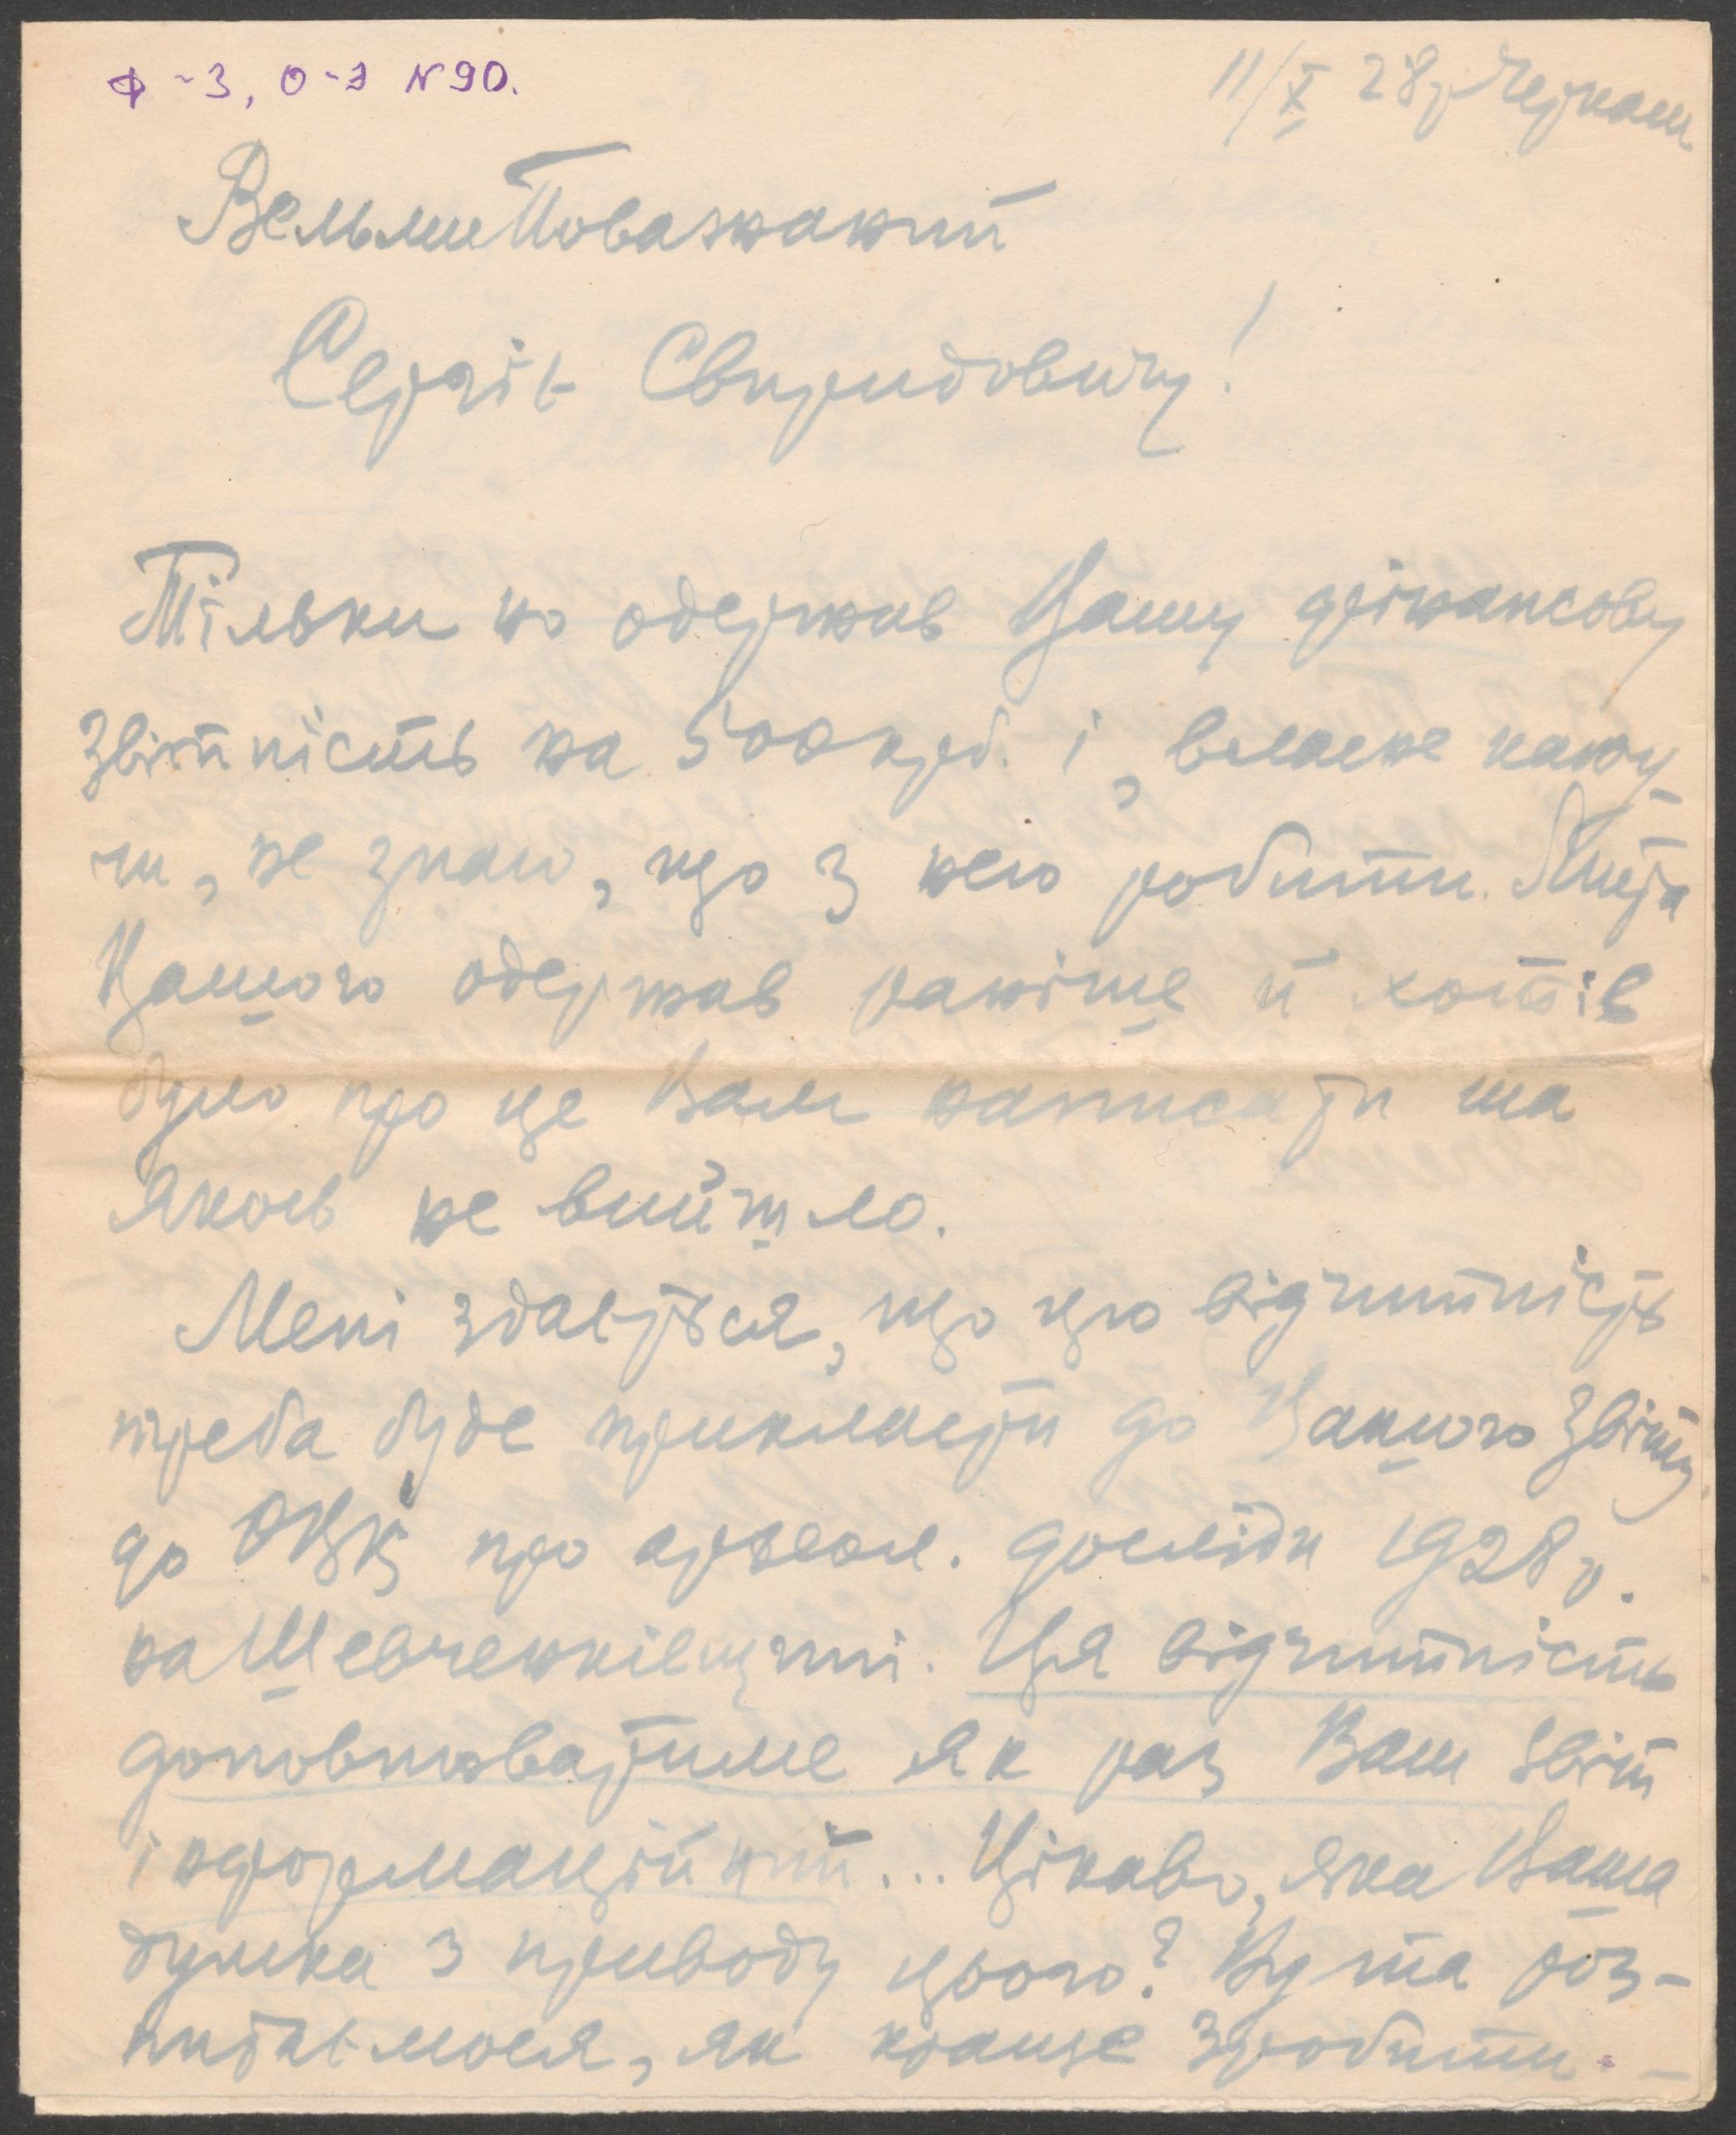 Ф-3, О-э N 90.
11/X 28 р Черкаси
ВельмиПоважаний
Сергію Свиридовичу!
Тільки но одержав Вашу фінансову
звітність на 500 крб. і, власне кажу
чи, не знаю, що з нею робити. Листа
Вашого одержав раніше й хотів
було про це Вам написати та
якось не вийшло.
Мені здається, що цю відчитність
треба буде прикласти до Вашого звіту
до ОВК про археол. досліди 1928 р.
на Шевченківщині. Ця відчитність
доповнюватиме як раз Ваш звіт
інформаційний... Цікаво, яка Ваша
думка з приводу цього?  та роз-
питаємося, як краще зробити. –